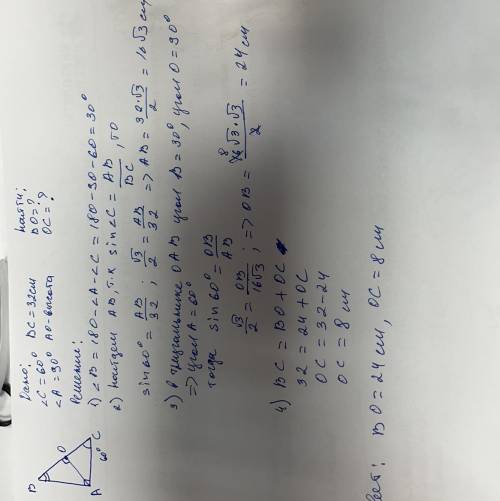 Дано:
∠C = 60° BC = 32см
∠A = 90° AO-высота
Найти:
BO = ?
OC = ?
B
O
A
60°
C
Решение:
1) ∠B = 180-∠A-∠C = 180-90-60 = 30°
2) Найдем AB, т.к sin∠C = AB/BC, то
sin60° = AB/32; √3/2 = AB/32 => AB = 32·√3/2 = 16√3 см
3) В треугольнике OAB угол B = 30°, угол O = 90°
=> угол A = 60°
тогда sin60° = OB/AB
√3/2 = OB/16√3; => OB = 16√3·√3/2 = 24 см
8
4) BC = BO + OC
32 = 24 + OC
OC = 32 - 24
OC = 8 см
вет: BO = 24 см, OC = 8 см